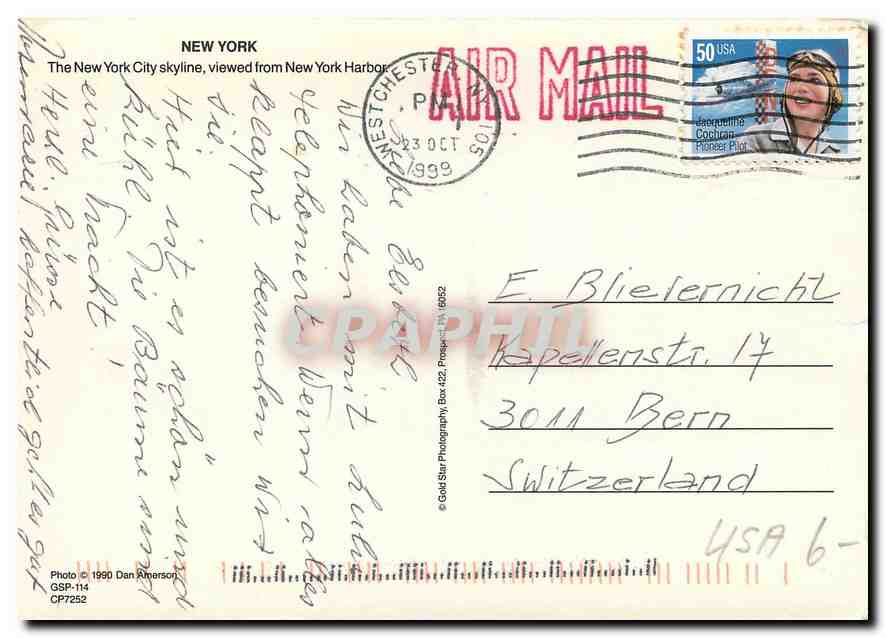 NEW YORK
The New York City skyline, viewed from New York Harbor.
AIR MAIL
WESTCHESTER NY 105
PM
23 OCT
1999
50 USA
Jacqueline
Cochran
Pioneer Pilot
Liebe Elsbeth
Wir haben mit Lulu
telephoniert. Wenn alles
klappt besuchen wir
sie.
Hier ist es schön und
kühl. Die Bäume sind
eine Pracht!
Herzl. Grüsse
hoffentlich geht es gut
© Gold Star Photography, Box 422, Prospect, PA 16052
CPAPHIL
E. Bliefernicht
Kapellenstr. 17
3011 Bern
Switzerland
USA 6-
Photo © 1990 Dan Amerson
GSP-114
CP7252